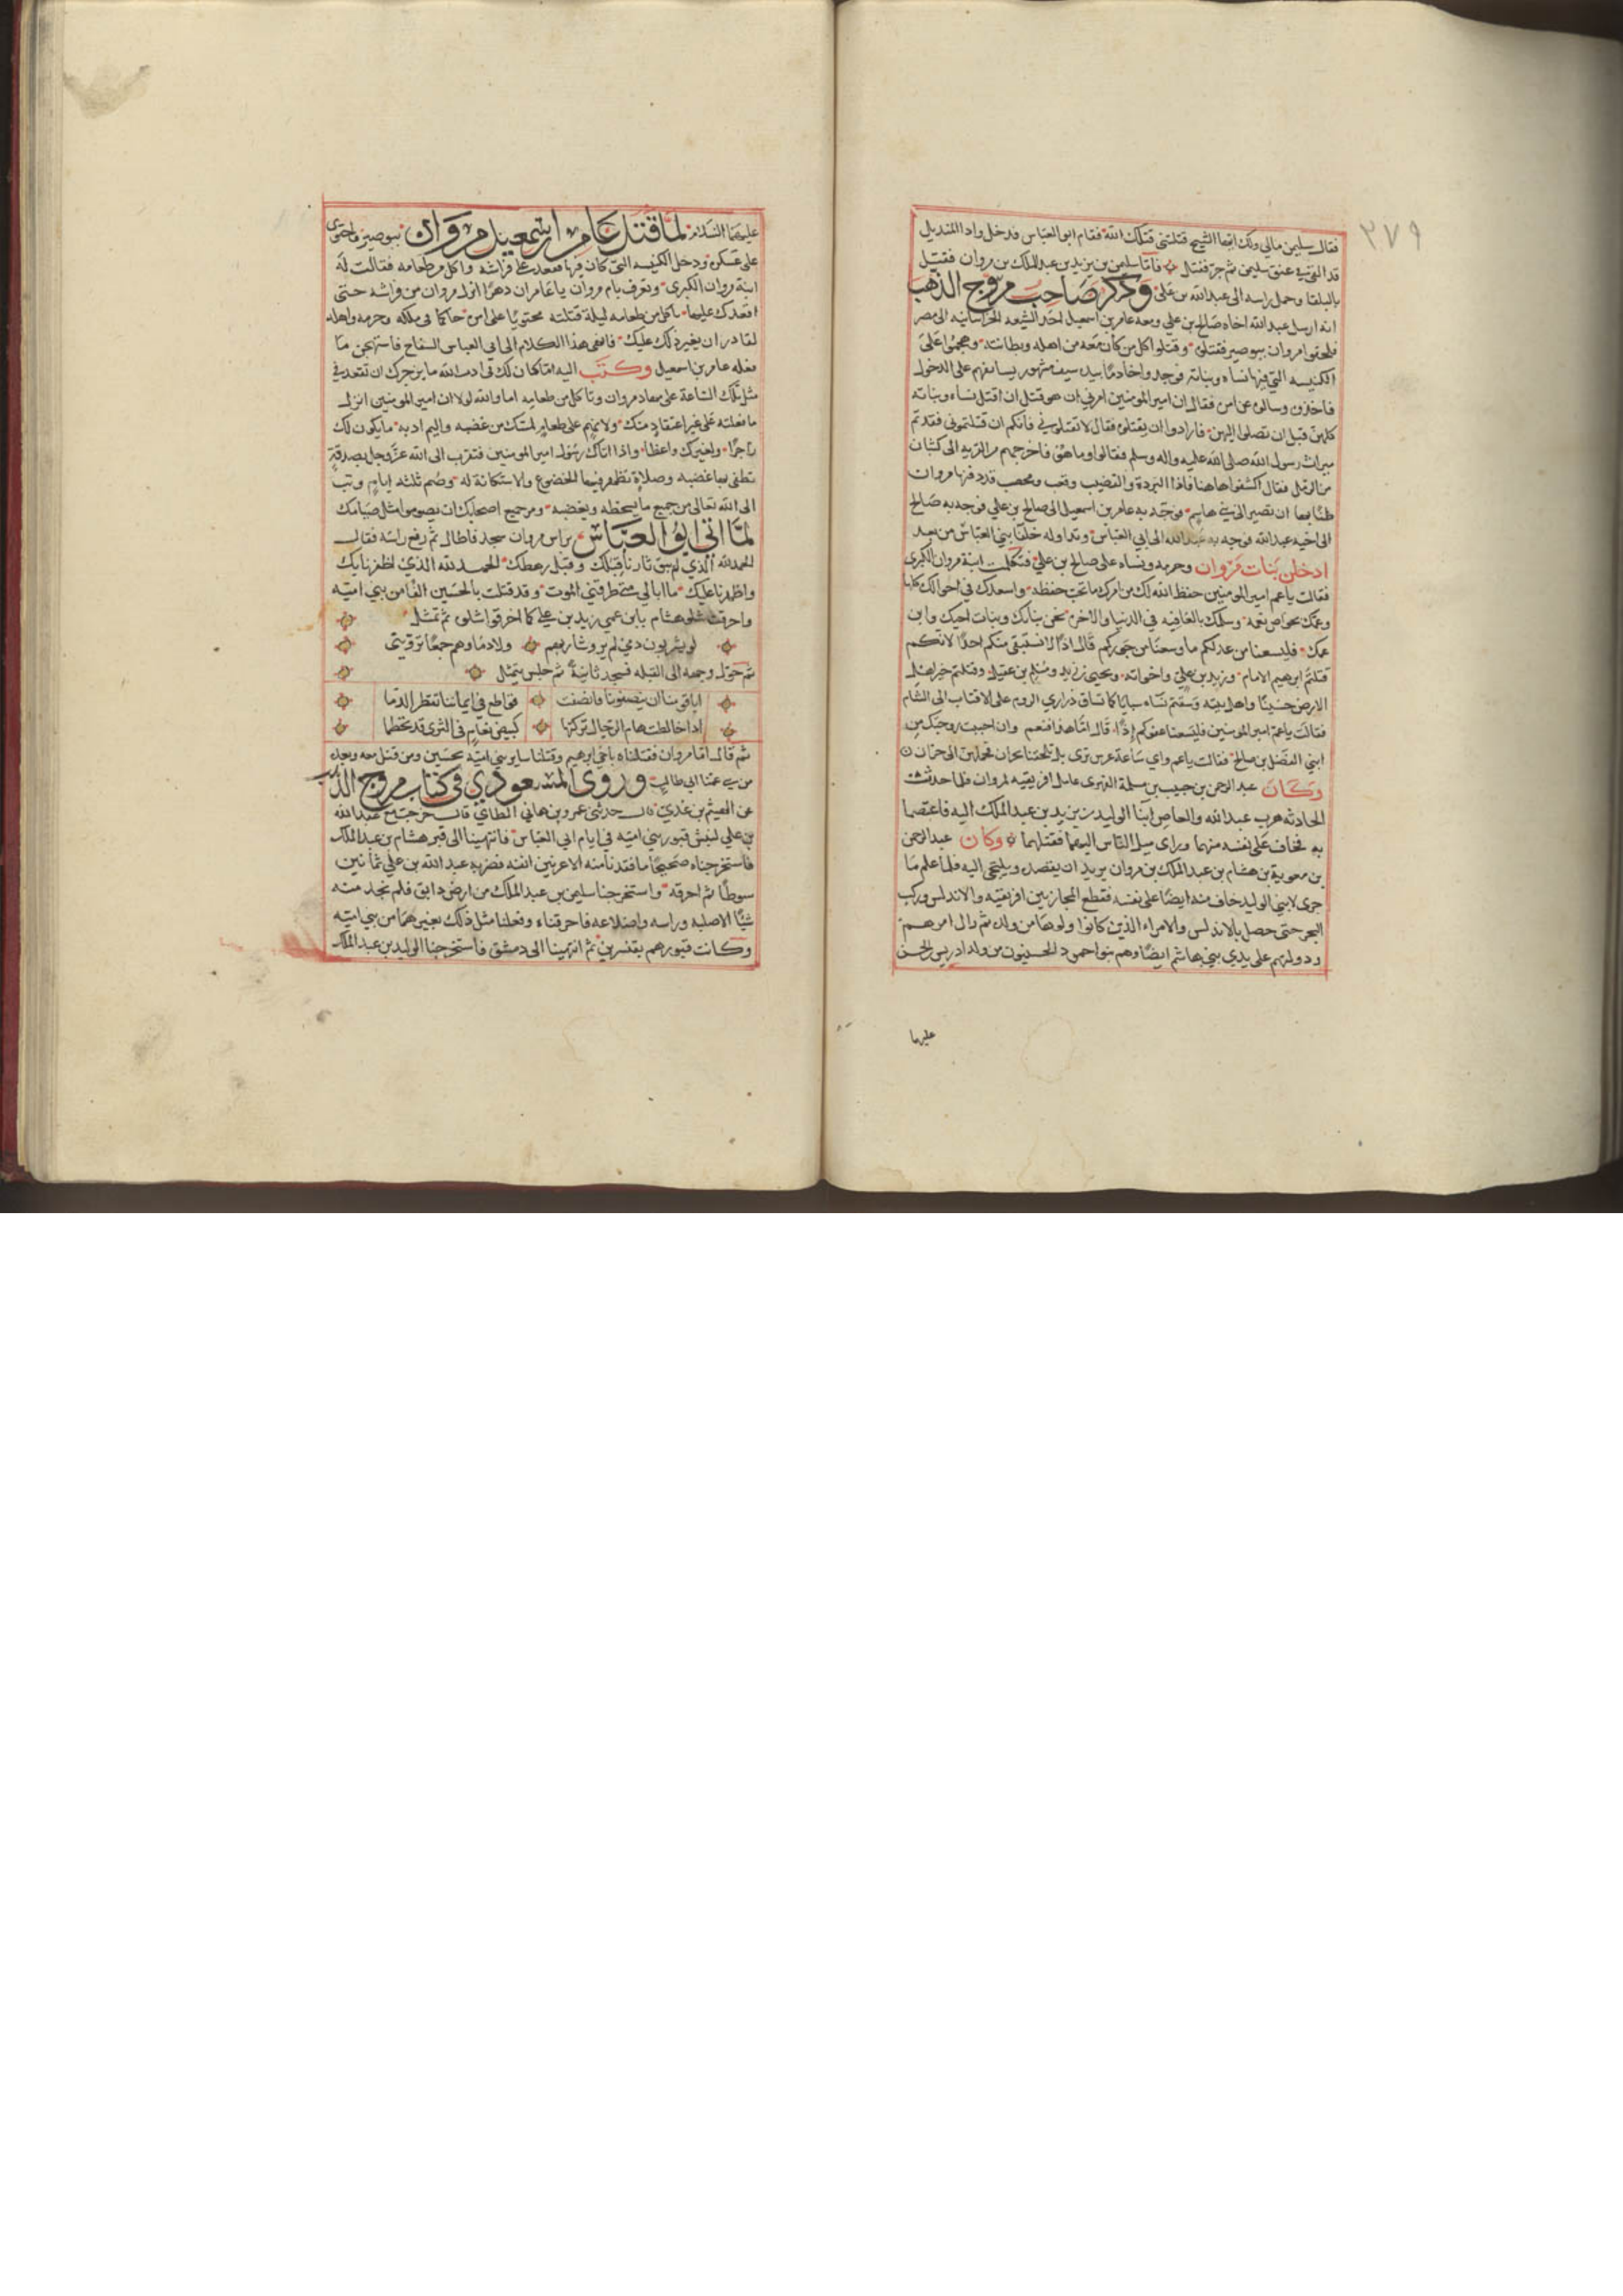 ٣٧٩
فقال سليمن مالي ولك ايها الشيخ قتلتني قتلك الله فقام ابو العباس فدخل واذا المنديل
قد القي في عنق سليمن ثم جر فقتل فاما سليمن بن يزيد بن عبد الملك بن مروان فقتل
بالبلقا وحمل راسه الى عبد الله بن علي وذكر صاحب مروج الذهب
انه ارسل عبد الله اخاه صالح بن علي ومعه عامر بن اسمعيل احد الشيعه الخراسانيه الى مصر
فلحقوا مروان ببوصير فقتلوه وقتلوا كل من كان معه من اهله وبطانته وهجموا على
الكنيسه التي فيها نساه وبناته فوجدوا خادما بيده سيف مشهور يسابقهم على الدخول
فاخذوه وسالوه عن امره فقال ان امير المومنين امرني ان هو قتل ان اقتل نساه وبناته
كلهن قبل ان تصلوا اليهن فارادوا ان يقتلوه فقال لا تقتلوني فانكم ان قتلتموني فقدتم
ميراث رسول الله صلى الله عليه واله وسلم فقالوا وما هو فاخرجهم من القريه الى كثبان
من الرمل فقال اكشفوا هاهنا فاذا البردة والقضيب وقعب ومخصب قد دفنها مروان
ظنا بها ان تصير الى بني هاشم فوجه به عامر بن اسمعيل الى صالح بن علي فوجه به صالح
الى اخيه عبد الله فوجه به عبد الله الى ابي العباس وتداوله خلفا بني العباس من بعد
ادخلن بنات مروان وحرمه ونساه على صالح بن علي فتكلمت ابنة مروان الكبرى
فقالت ياعم امير المومنين حفظ الله لك من امرك ما تحب حفظه واسعدك في احوالك كلها
وعمك بخواص نعمه وسلمك بالعافيه في الدنيا والاخره نحن بناتك وبنات اخيك وابن
عمك فليسعنا من عدلكم ما وسعنا من جوركم قال اذا لا نستبقي منكم احدا لانكم
قتلتم ابرهيم الامام وزيد بن علي واخواته ويحيى بن زيد ومسلم بن عقيل وقتلتم خير اهل
الارض حسينا واهل بيته وسقتم نساه سبايا كما تساق ذراري الروم على الاقتاب الى الشام
فقالت ياعم امير المومنين فليسعنا عفوكم اذا قال اما هذا فنعم وان احببت زوجتك من
ابني الفضل بن صالح فقالت ياعم واي ساعة عرس ترى بل تلحقنا بحران فحملهن الى حران
وكان عبد الرحمن بن حبيب بن مسلمة الفهرى عامل افريقيه لمروان فلما حدثت
الحادثه هرب عبد الله والعاص ابنا الوليد بن يزيد بن عبد الملك اليه فاعتصما
به فخاف على نفسه منهما وراى ميل الناس اليهما فقتلهما وكان عبد الرحمن
بن معوية بن هشام بن عبد الملك بن مروان يريد ان يقصده ويلتجي اليه فلما علم ما
جرى لابني الوليد خاف منه ايضا على نفسه فقطع المجاز بين افريقيه والاندلس وركب
البحر حتى حصل بالاندلس والامراء الذين كانوا ولوها من ولده ثم زال امرهم
ودولتهم على يدي بني هاشم ايضا وهم بنو احمود الحسنيون من ولد ادريس بن الحسن
عليهما
عليهما السلام لما قتل عامر اسمعيل مروان ببوصير واحتوى
على عسكره ودخل الكنيسه التي كان فيها فقعد على فراشه واكل من طعامه فقالت له
ابنة مروان الكبرى وتعرف بام مروان ياعامر ان دهرا انزل مروان من فراشه حتى
اقعدك عليها تاكل من طعامه ليلة قتلته محتويا على امره حاكما في ملكه وحرمه واهله
لقادر ان يغير ذلك عليك فانهى هذا الكلام الى ابي العباس السفاح فاستهجن ما
فعله عامر بن اسمعيل وكتب اليه اما كان لك في ادب الله ما يزجرك ان تقعد في
مثل تلك الساعة على مهاد مروان وتاكل من طعامه اما والله لولا ان امير المومنين انزل
ما فعلته على غير اعتقاد منك ولا نهم على طعام لمسك من غضبه واليم ادبه ما يكون لك
زاجرا ولغيرك واعظا واذا اتاك رسول امير المومنين فتقرب الى الله عز وجل بصدقة
تطفي بها غضبه وصلاة تظهر فيها الخضوع والاستكانة له وصم ثلثه ايام وتب
الى الله تعالى من جميع ما يسخطه ويغضبه ومر جميع اصحابك ان يصوموا مثل صيامك
لما اتى ابو العباس براس مروان سجد فاطال ثم رفع راسه فقال
الحمد لله الذي لم يبق ثارنا قبلك وقبل رهطك الحمد لله الذي اظفرنا بك
واظهرنا عليك ما ابالي متى طرقني الموت وقد قتلت بالحسين الفا من بني اميه
واحرقت شلو هشام بابن عمي زيد بن علي كما احرقوا شلوه ثم تمثل
لو يشربون دمي لم يرو شاربهم ولا دماوهم جمعا ترويني
ثم حول وجهه الى القبله فسجد ثانية ثم جلس يتمثل
ابا قومنا ان ينصفونا فانصفت قواطع في ايماننا تقطر الدما
اذا خالطت هام الرجال تركنها كبيض نعام في الثرى قد تحطما
ثم قال اما مروان فقتلناه باخي ابرهيم وقتلنا ساير بني اميه بحسين ومن قتل معه وبعده
من بني عمنا ابي طالب وروى المسعودي في كتاب مروج الذهب
عن الهيثم بن عدي قال حدثني عمرو بن هاني الطائي قال خرجت مع عبد الله
بن علي لنبش قبور بني اميه في ايام ابي العباس فانتهينا الى قبر هشام بن عبد الملك
فاستخرجناه صحيحا ما فقدنا منه الا عرنين انفه فضربه عبد الله بن علي ثمانين
سوطا ثم احرقه واستخرجنا سليمن بن عبد الملك من ارض دابق فلم نجد منه
شيئا الا صلبه وراسه واضلاعه فاحرقناه وفعلنا مثل ذلك بغيرهما من بني اميه
وكانت قبورهم بقنسرين ثم انتهينا الى دمشق فاستخرجنا الوليد بن عبد الملك